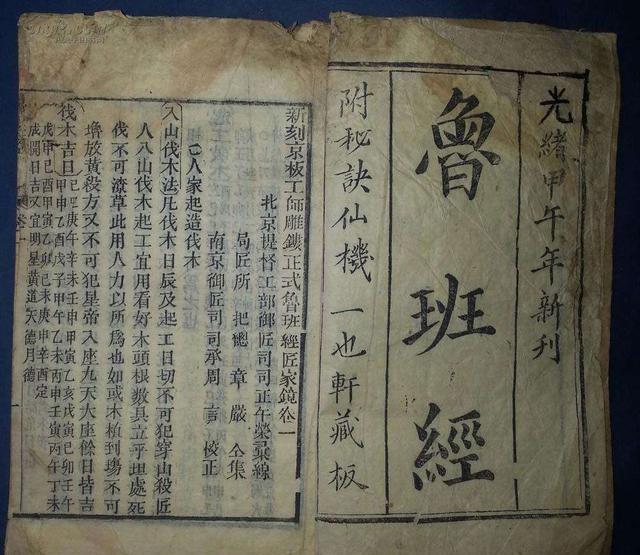 光緒甲午年新刊
魯班經
附秘訣仙機 一也軒藏板
新刻京板工師雕鏤正式魯班經匠家鏡卷一
北京提督工部御匠司司正午榮彙線
局匠所把總章嚴仝集
南京御匠司司承周言校正
人家起造伐木
入山伐木法凡伐木日辰及起工日切不可犯穿山殺匠
人入山伐木起工宜用看好木頭根數具立平坦處死
伐不可潦草此用人力以所爲也如或木植到塲不可
堆放黃殺方又不可犯星帝入座九天大座餘日皆吉
伐木吉日
己巳庚午辛未壬申甲寅乙亥戊寅己卯壬午
甲申乙酉戊子甲午乙未丙申壬寅丙午丁未
戊申己酉甲寅乙卯己未庚申辛酉定
成開日吉又宜明星黃道天德月德